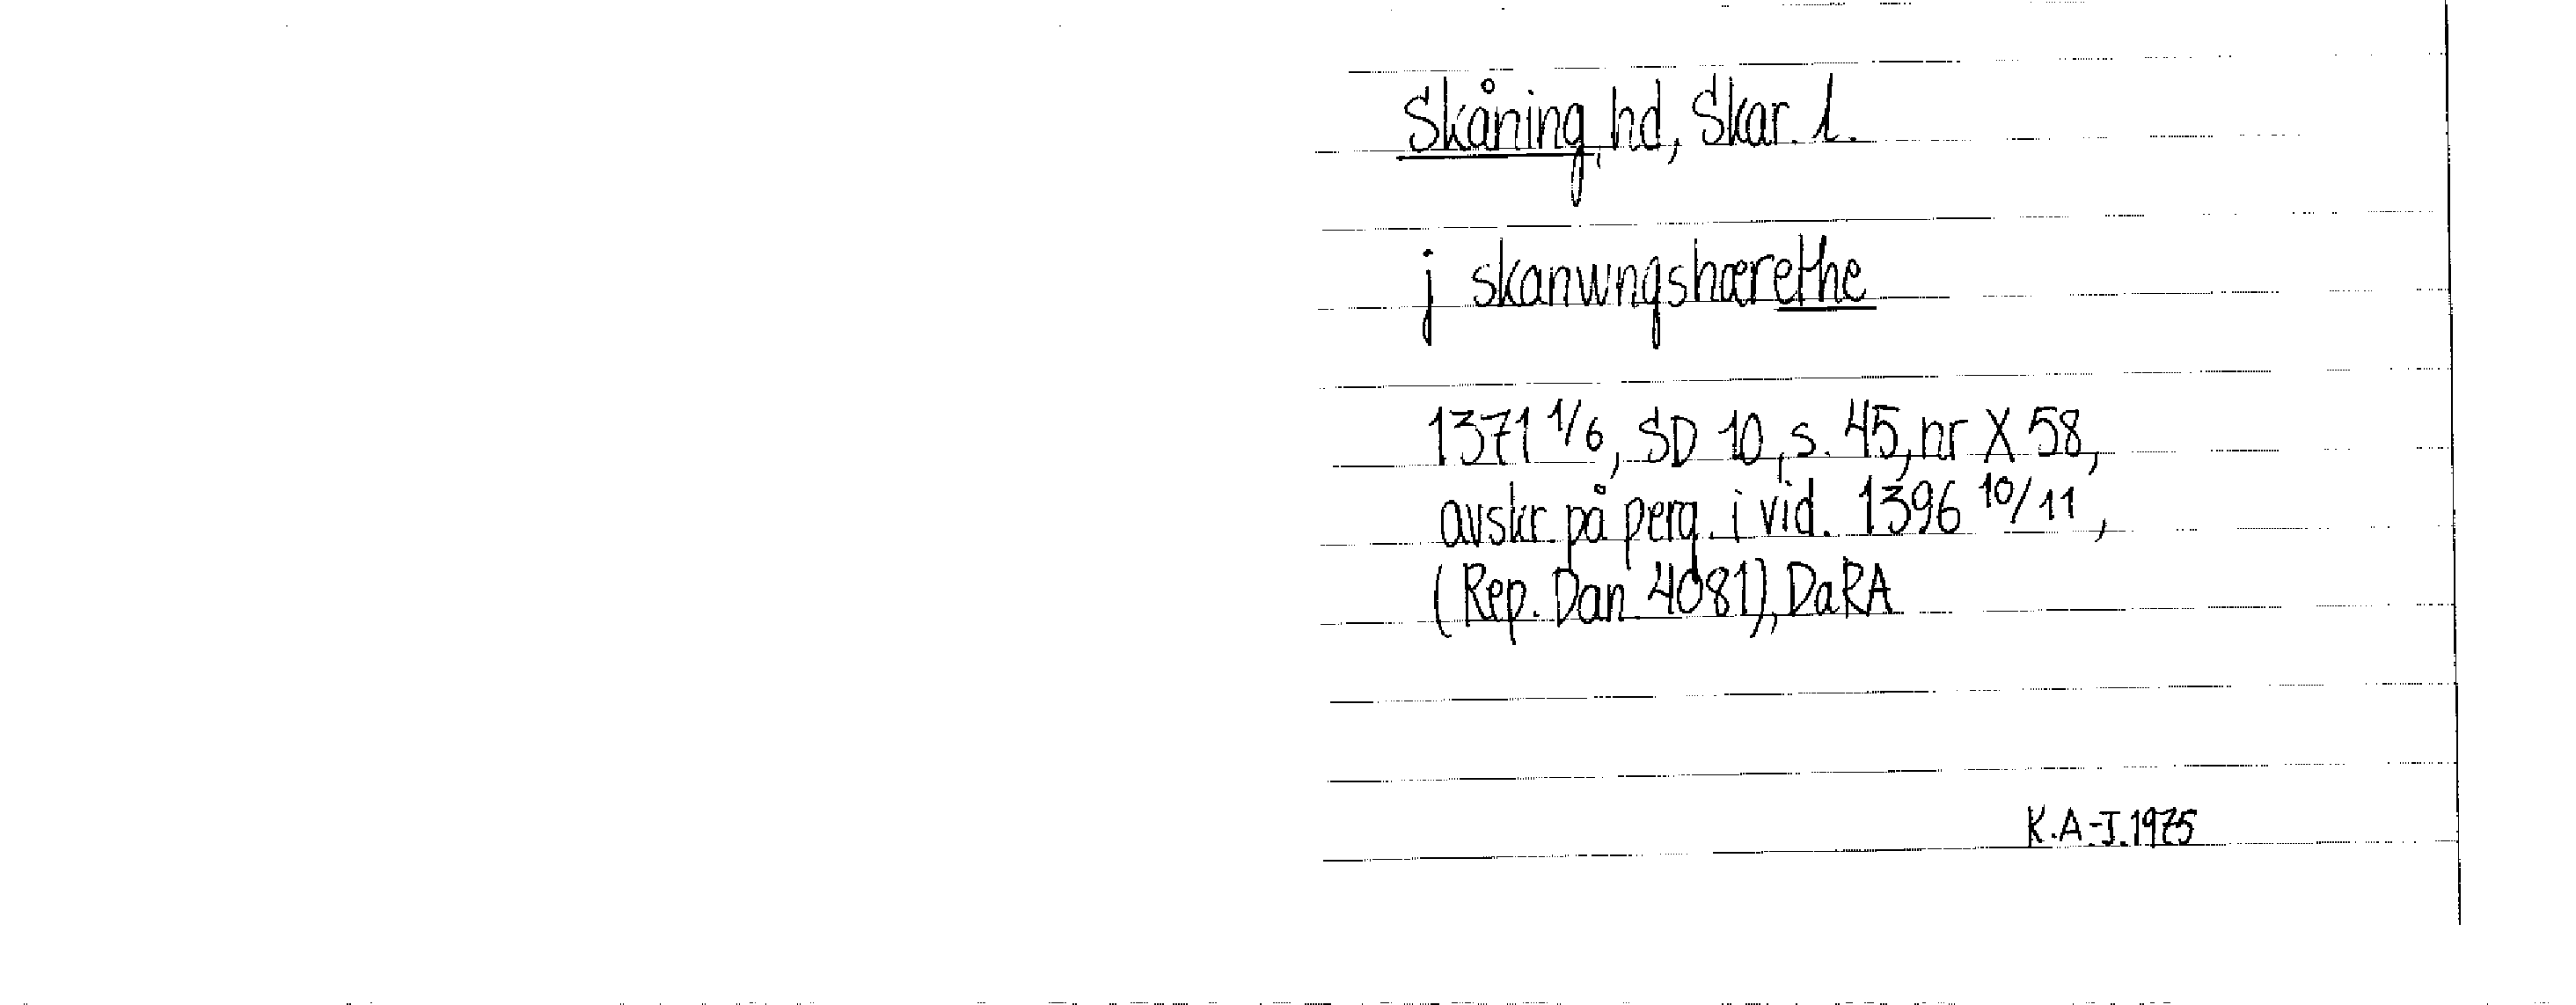 Skåning, hd, Skar. l.
j skanwngshærethe
1371 1/6, SD 10, s. 45, nr X 58,
avskr. på perg. i vid. 1396 10/11,
(Rep. Dan. 4081), DaRA
K.A-J. 1975